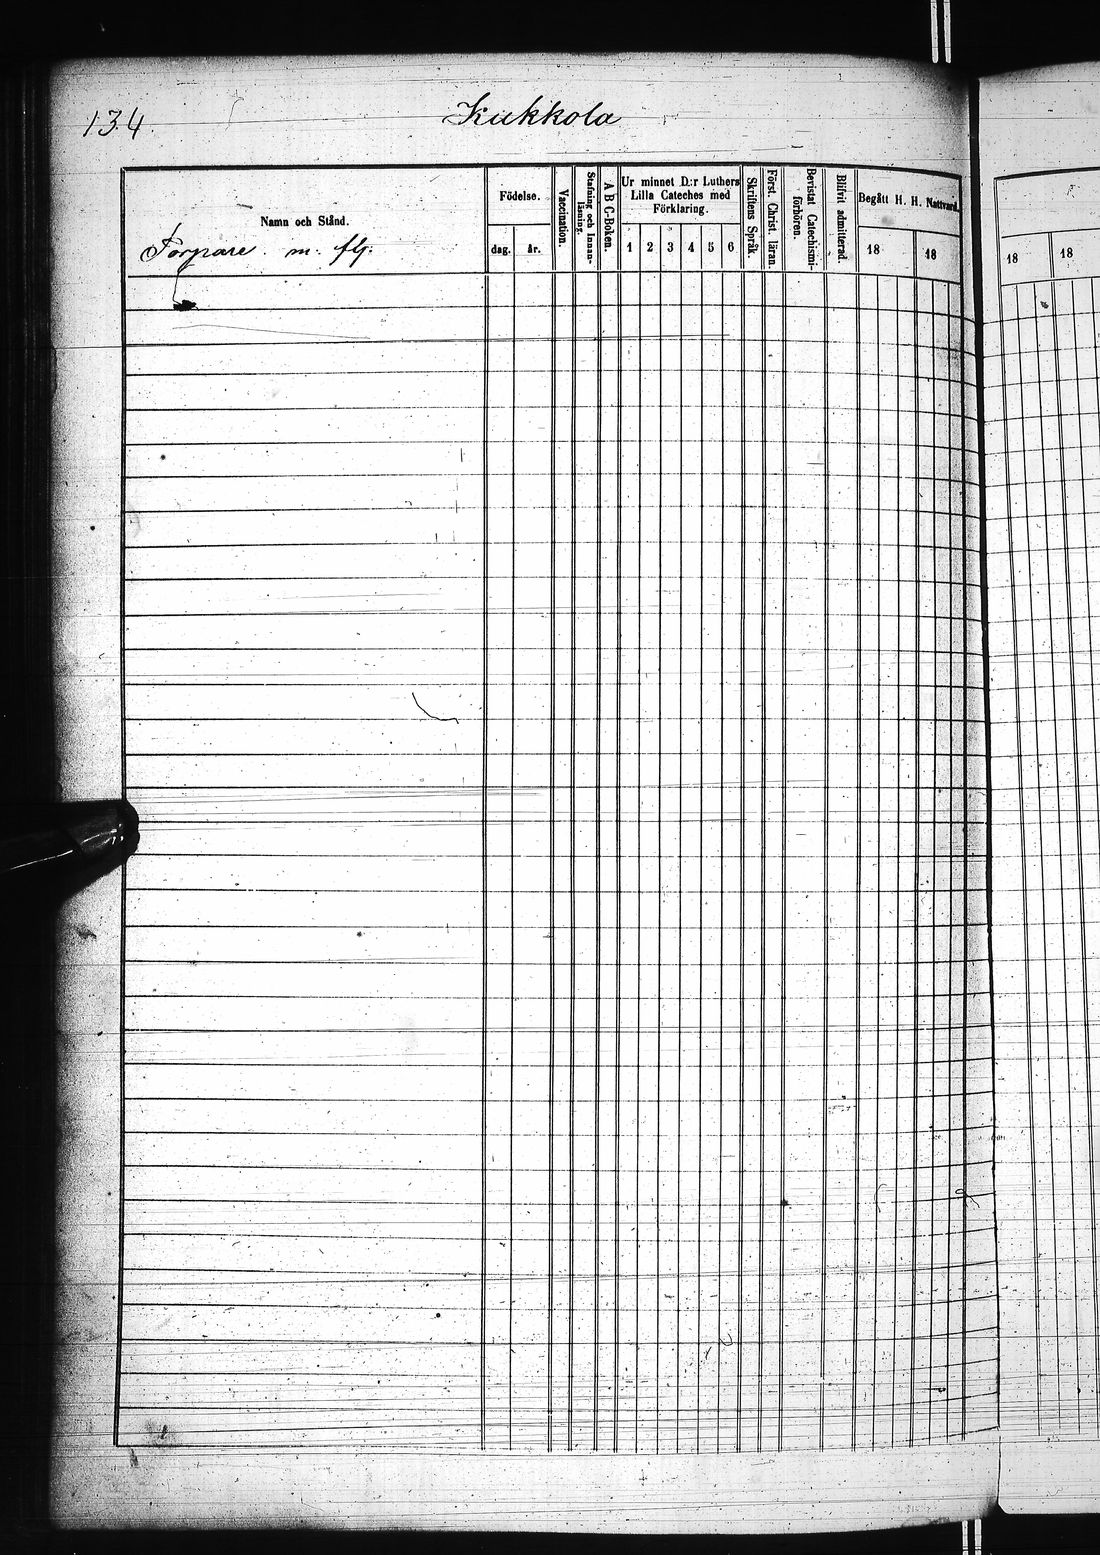 134.
Kukkola
Namn och Stånd.
Torpare. m. fl.
Födelse.
dag.
år.
Vaccination.
Stafning och Innan-
läsning.
A B C-Boken.
Ur minnet D:r Luthers
Lilla Cateches med
Förklaring.
1 2 3 4 5 6
Skriftens Språk.
Först. Christ. läran.
Bevistat Catechismi-
förhören.
Blifvit admitterad.
Begått H. H. Nattvard.
18
18
18
18